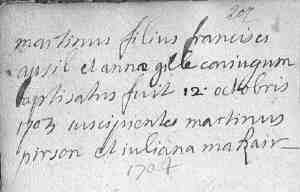 207
martinus filius francisci
apsil et annæ gille coniugum
baptisatus fuit 12 octobris
1704 suscipientes martinus
pirson et iuliana mathair
1704